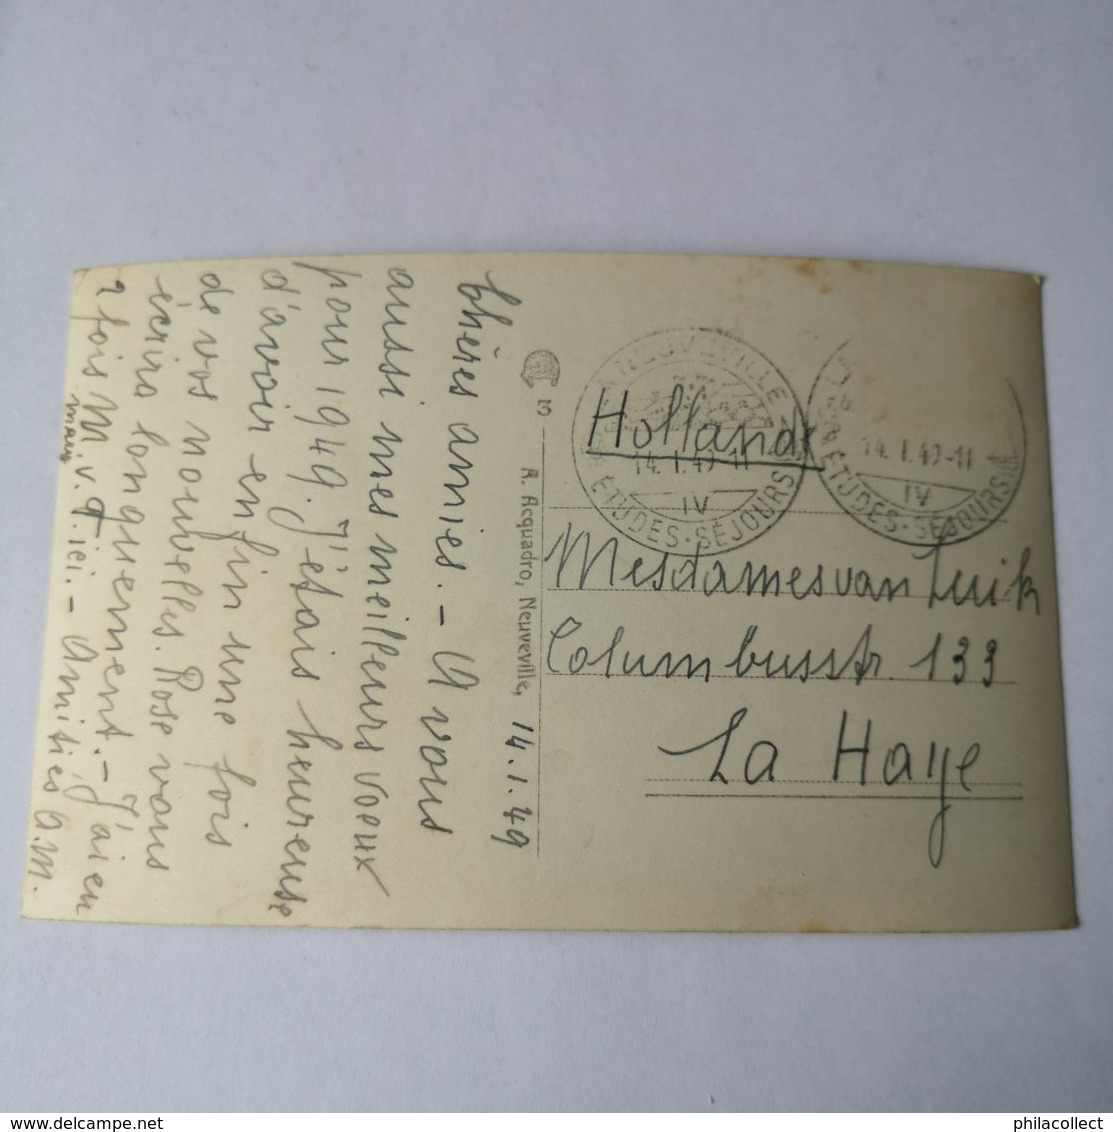 14.1.49
Chères amies. - A vous
aussi mes meilleurs voeux
pour 1949. J'étais heureuse
d'avoir enfin une fois
de vos nouvelles. Rose vous
écrira longuement. - J'ai eu
2 fois M v. ici. - Amitiés A.M.
R. Acquadro, Neuveville,
NEUVEVILLE
14.1.49-11
IV
ÉTUDES-SÉJOURS
14.1.49-11
IV
ÉTUDES-SÉJOURS
Hollande
Mesdames van Luik
Columbusstr. 133
La Haye
delcampe.net
philacollect